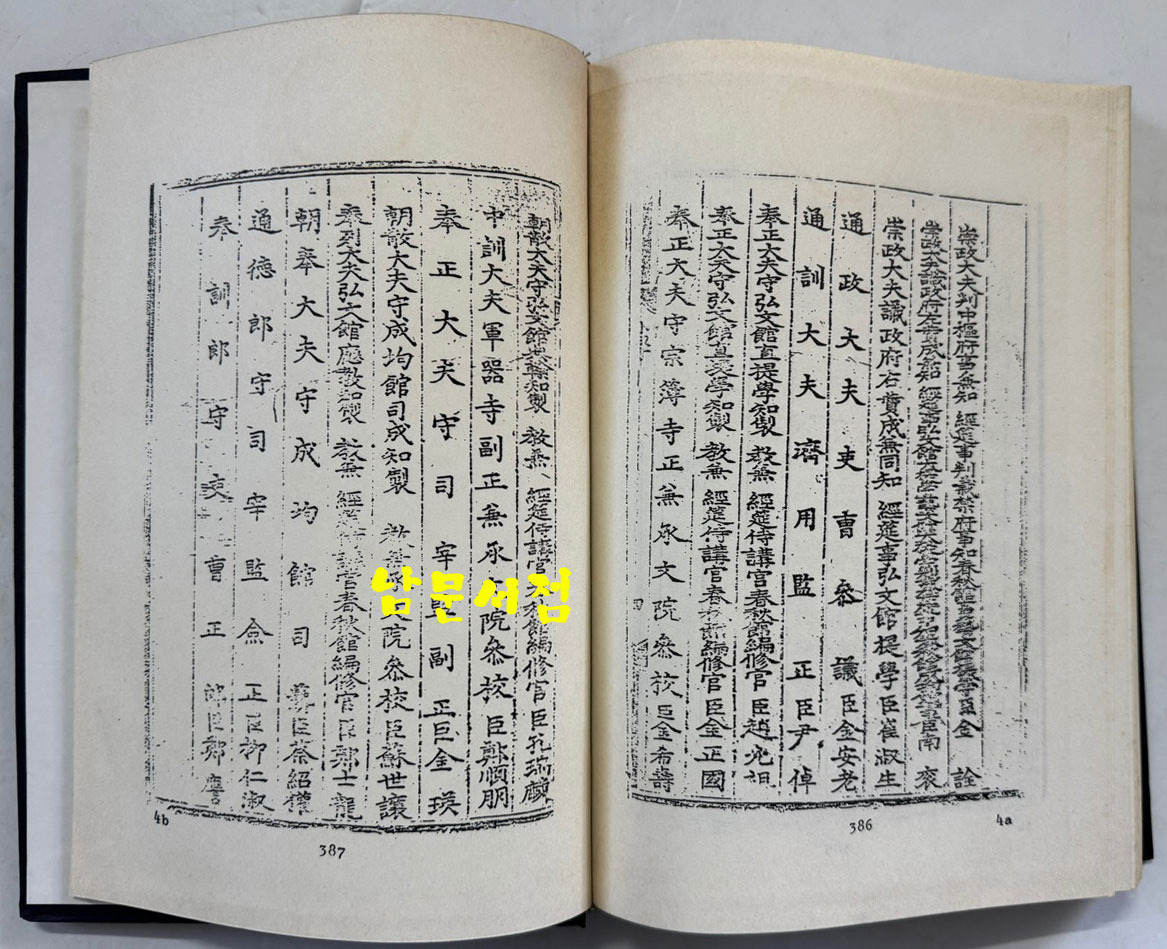 崇政大夫判中樞府事兼知 經筵事判義禁府事知春秋館事 學臣金 詮
崇政大夫議政府 成 知 經筵 弘文館 臣南 袞
崇政大夫議政府右賛成兼同知 經筵事弘文館提學臣崔淑生
通政大夫吏曹叅議臣金安老
通訓大夫濟用監正臣尹倬
奉正大夫守弘文館直提學知製 教兼 經筵侍講官春秋館編修官臣趙光祖
奉正大夫守弘文館直提學知製 教兼 經筵侍講官春秋館編修官臣金正國
奉正大夫守宗簿寺正兼承文院叅校臣金希壽
386
4a
朝散大夫守弘文館典翰知製 教兼 經筵侍講官春秋館編修官臣孔瑞麟
中訓大夫軍器寺副正兼承文院叅校臣鄭順朋
奉正大夫守司宰監副正臣金瑛
朝散大夫守成均館司成知製 教兼承文院叅校臣蘇世讓
奉列大夫弘文館應教知製 教兼 經筵侍講官春秋館編修官臣鄭士龍
朝奉大夫守成均館司藝臣蔡紹權
通德郎守司宰監僉正臣柳仁淑
奉訓郎守吏曹正 臣鄭譍
4b
387
남문서점